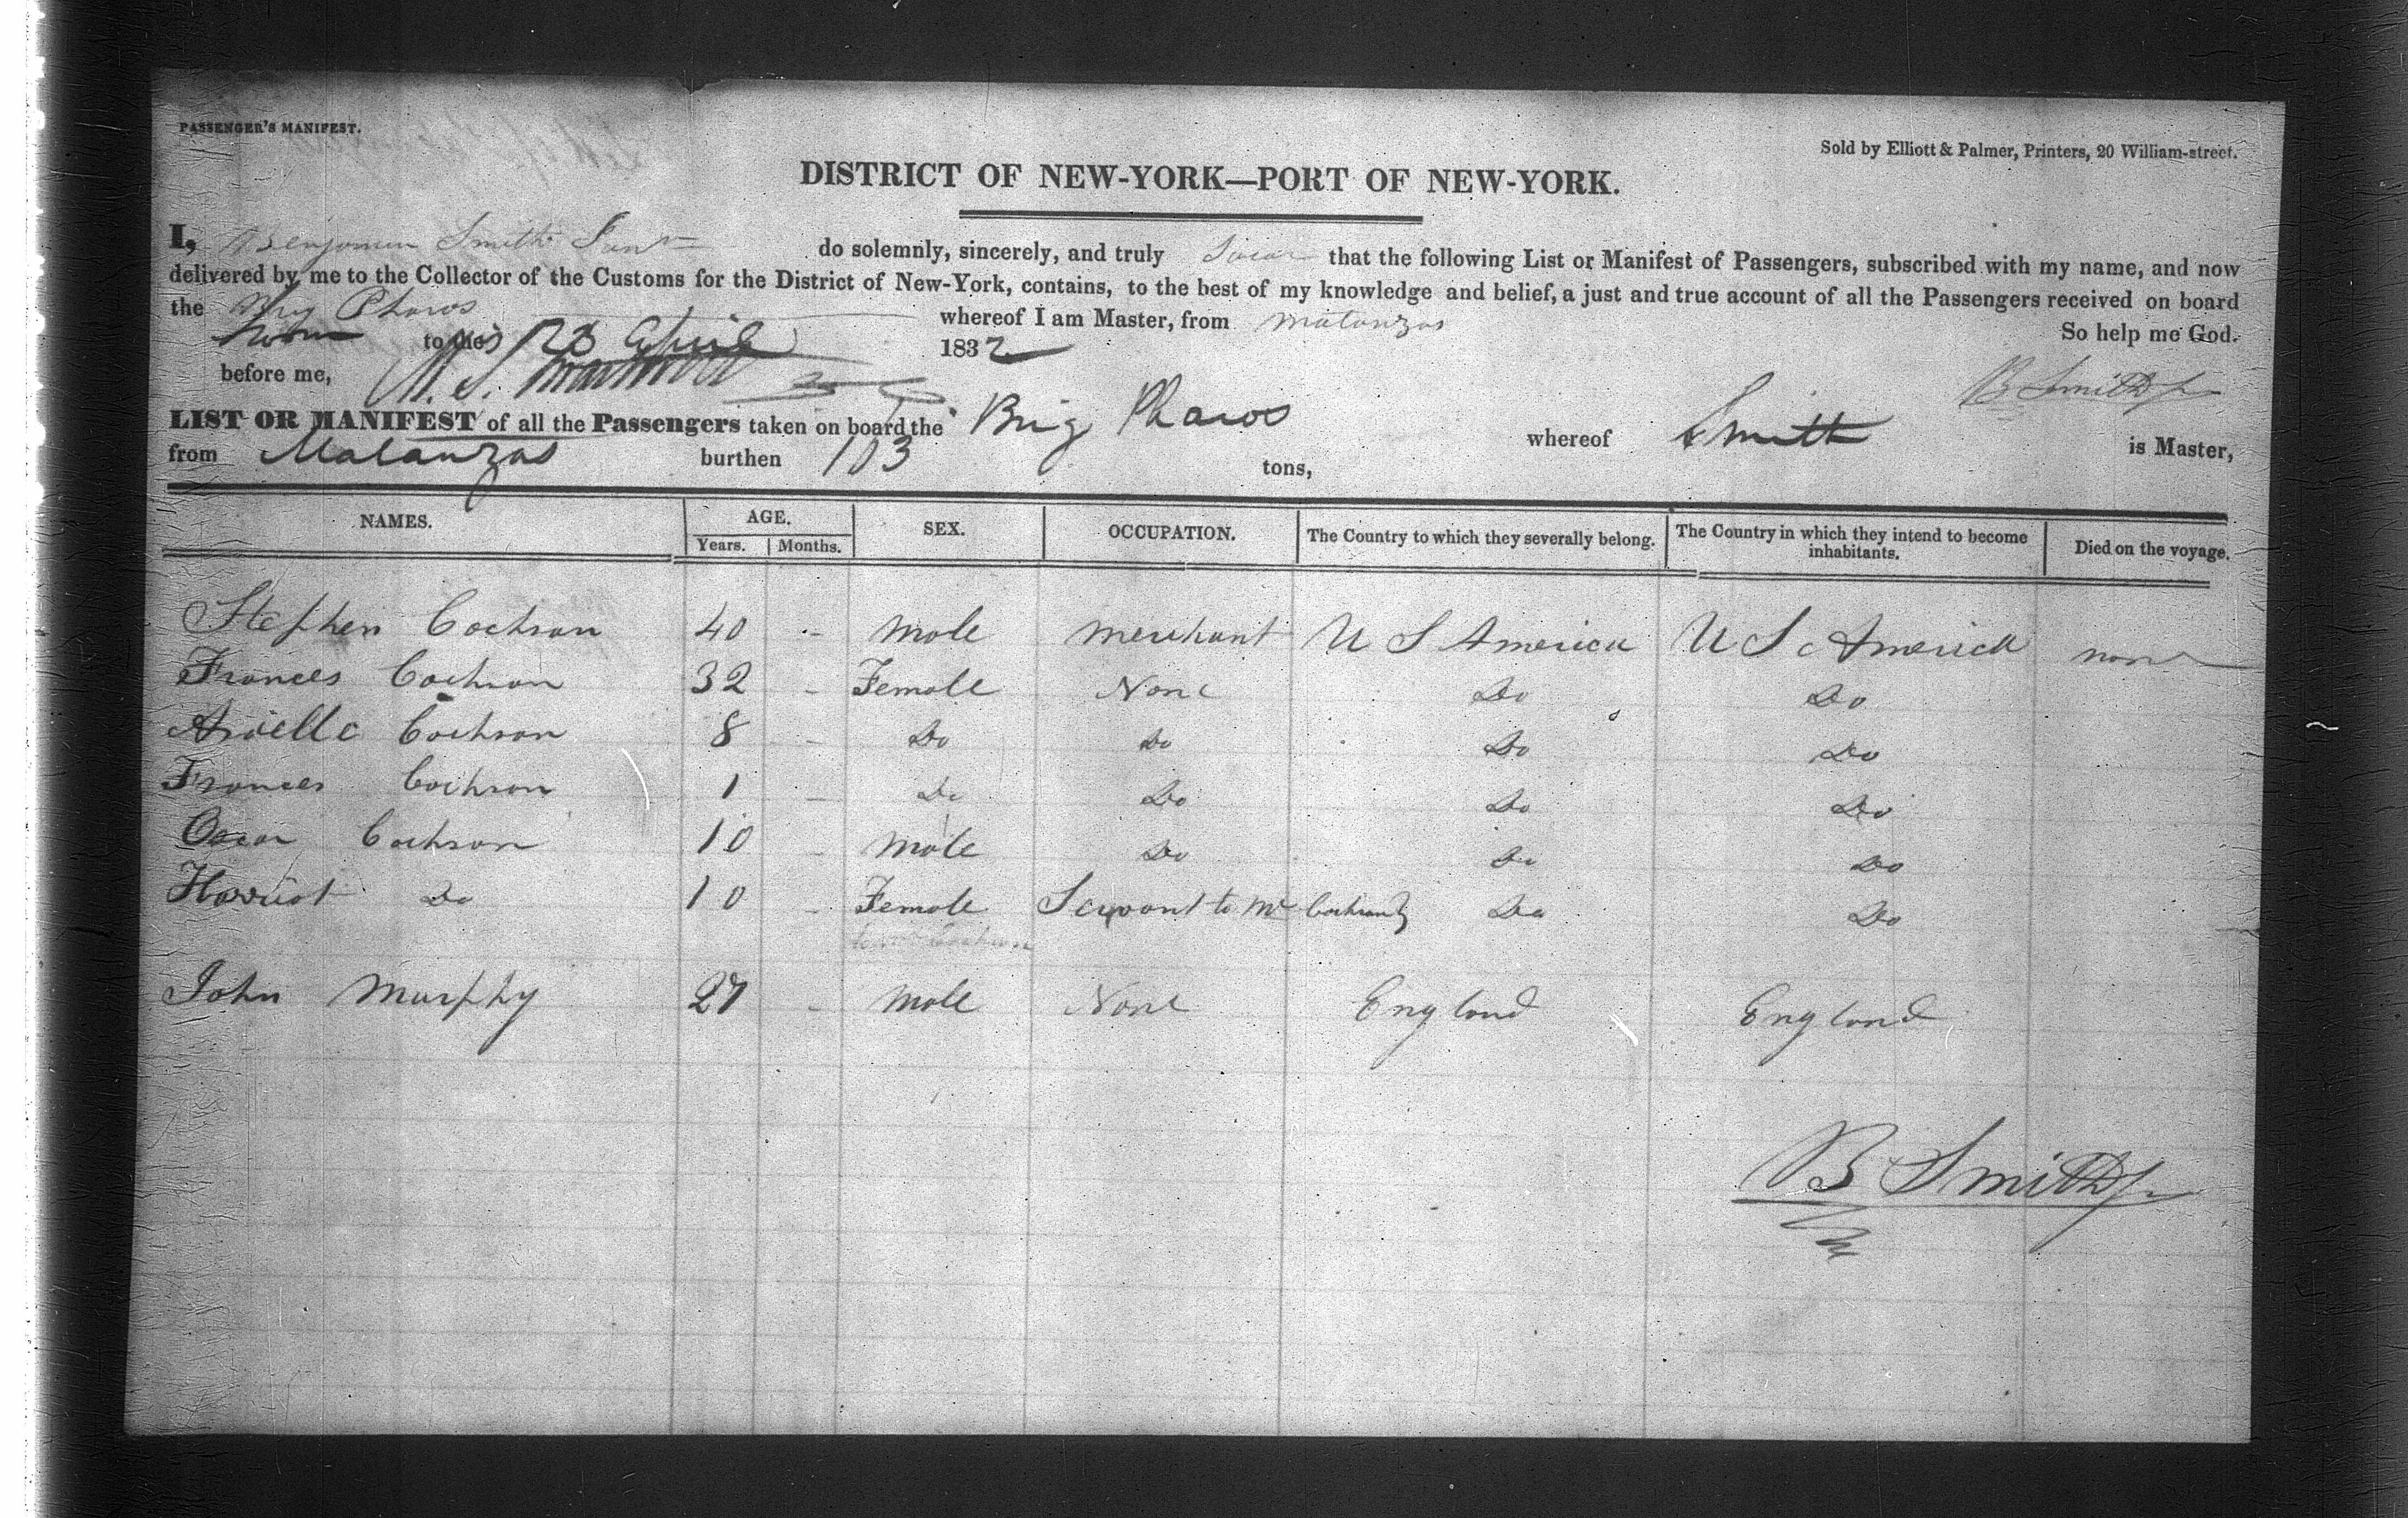 PASSENGER'S MANIFEST.
Sold by Elliott & Palmer, Printers, 20 William-street.
DISTRICT OF NEW-YORK—PORT OF NEW-YORK.
I, Benjamin Smith Junr do solemnly, sincerely, and truly Swear that the following List or Manifest of Passengers, subscribed with my name, and now
delivered by me to the Collector of the Customs for the District of New-York, contains, to the best of my knowledge and belief, a just and true account of all the Passengers received on board
the Brig Pharos whereof I am Master, from Matanzas So help me God.
Sworn to this 23 April 1832
before me, B Smith Jr
LIST OR MANIFEST of all the Passengers taken on board the Brig Pharos whereof Smith is Master,
from Matanzas burthen 103 tons,
NAMES. AGE. SEX. OCCUPATION. The Country to which they severally belong. The Country in which they intend to become inhabitants. Died on the voyage.
Years. Months.
Stephen Cochran 40 - Male merchant U S America U S America none
Frances Cochran 32 - Female None Do Do
Arielle Cochran 8 - Do Do Do Do
Frances Cochran 1 - Do Do Do Do
Oscar Cochran 10 - Male Do Do Do
Harriot Do 10 - Female Servant to Mr Cochran Do Do
John Murphy 27 - Male None England England
B Smith Jr